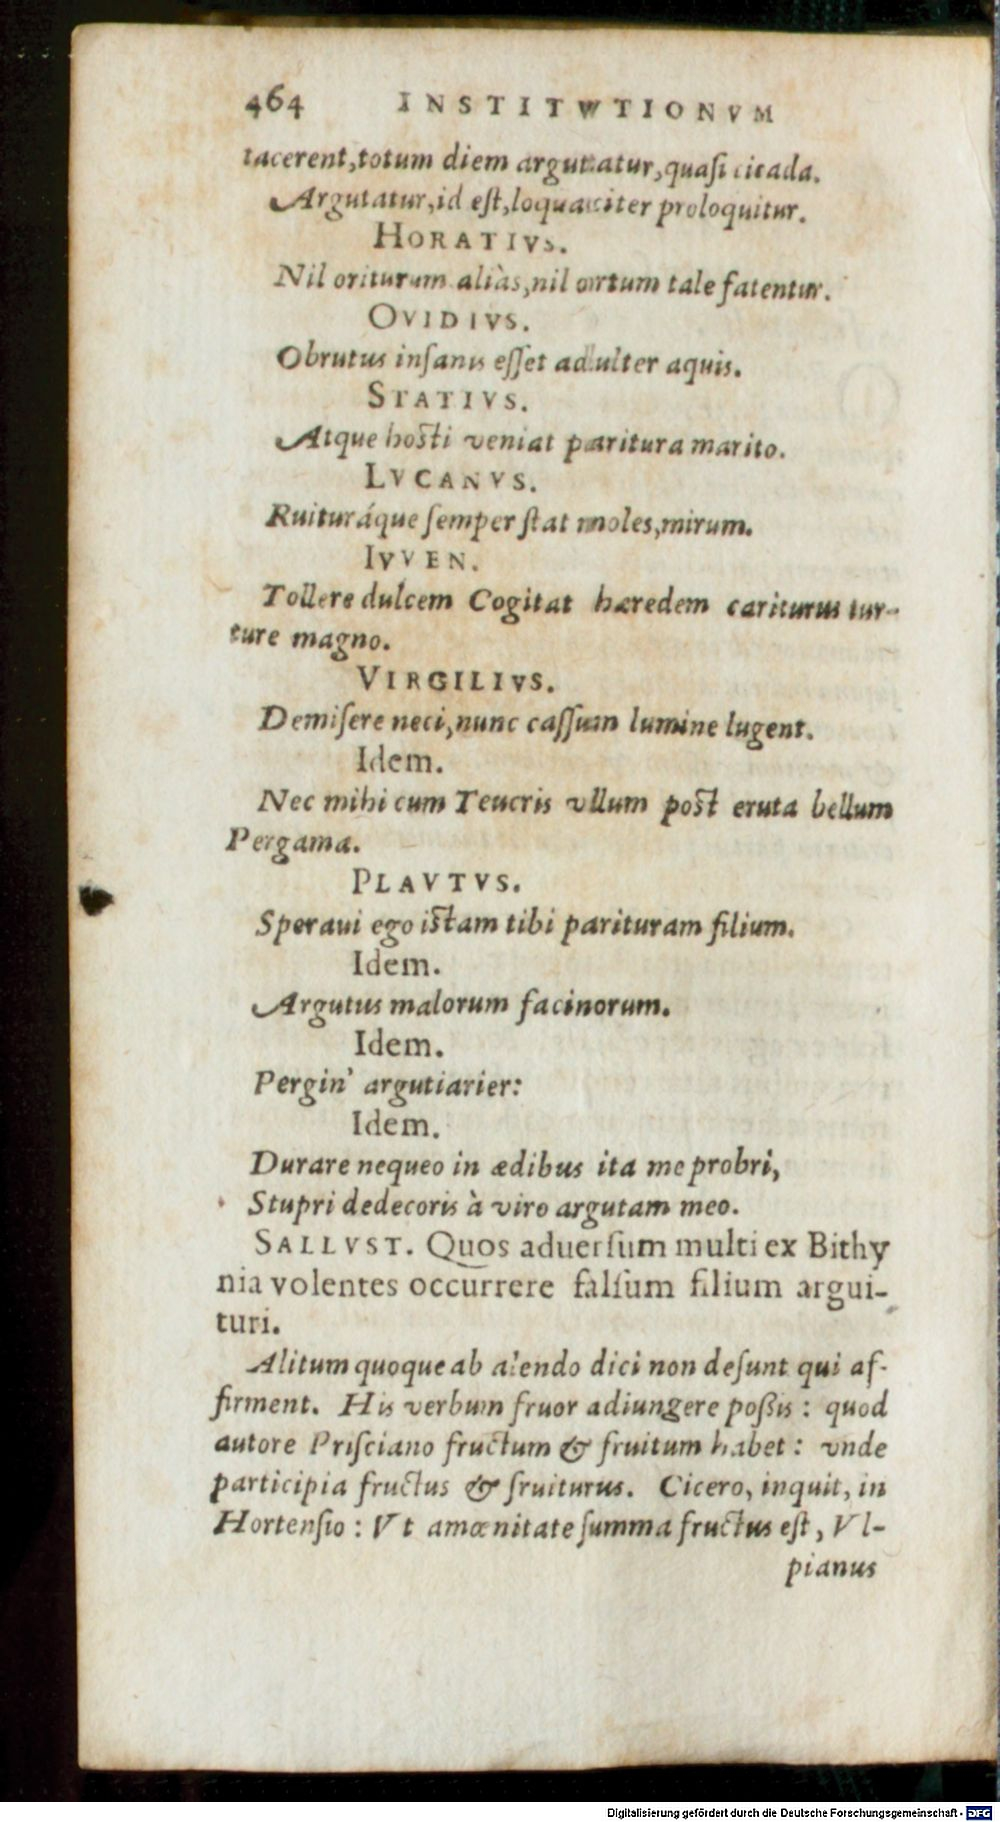 464 INSTITVTIONVM
tacerent, totum diem argutatur, quasi cicada.
Argutatur, id est, loquaciter proloquitur.
HORATIVS.
Nil oriturum aliàs, nil ortum tale fatentur.
OVIDIVS.
Obrutus insanis esset adulter aquis.
STATIVS.
Atque hosti veniat paritura marito.
LVCANVS.
Ruituráque semper stat moles, mirum.
IVVEN.
Tollere dulcem Cogitat hæredem cariturus tur-
ture magno.
VIRGILIVS.
Demisere neci, nunc cassum lumine lugent.
Idem.
Nec mihi cum Teucris vllum post eruta bellum
Pergama.
PLAVTVS.
Speraui ego istam tibi parituram filium.
Idem.
Argutus malorum facinorum.
Idem.
Pergin' argutiarier:
Idem.
Durare nequeo in ædibus ita me probri,
Stupri dedecoris à viro argutam meo.
SALLVST. Quos aduersum multi ex Bithy
nia volentes occurrere falsum filium argui-
turi.
Alitum quoque ab alendo dici non desunt qui af-
firment. His verbum fruor adiungere possis: quod
autore Prisciano fructum & fruitum habet: vnde
participia fructus & fruiturus. Cicero, inquit, in
Hortensio: Vt amœnitate summa fructus est, Vl-
pianus
Digitalisierung gefördert durch die Deutsche Forschungsgemeinschaft - DFG